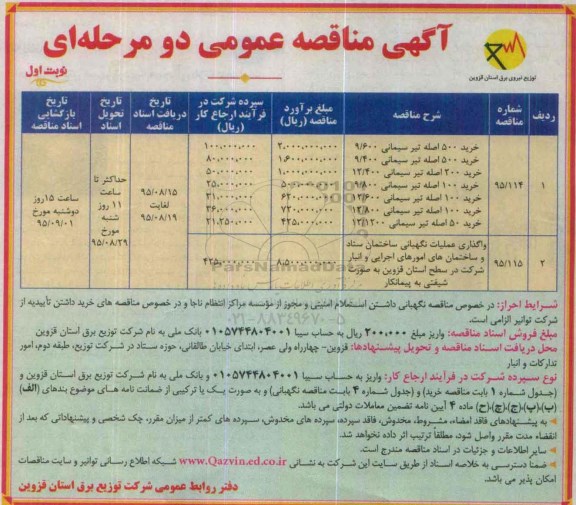 آگهی مناقصه عمومی دو مرحله‌ای
نوبت اول
توزیع نیروی برق استان قزوین
ردیف
شماره مناقصه
شرح مناقصه
مبلغ برآورد مناقصه (ریال)
سپرده شرکت در فرآیند ارجاع کار (ریال)
تاریخ دریافت اسناد مناقصه
تاریخ تحویل اسناد
تاریخ بازگشایی اسناد مناقصه
۱
۹۵/۱۱۴
خرید ۵۰۰ اصله تیر سیمانی ۹/۶۰۰ ۲,۰۰۰,۰۰۰,۰۰۰ ۱۰۰,۰۰۰,۰۰۰
خرید ۵۰۰ اصله تیر سیمانی ۹/۴۰۰ ۱,۶۰۰,۰۰۰,۰۰۰ ۸۰,۰۰۰,۰۰۰
خرید ۲۰۰ اصله تیر سیمانی ۱۲/۴۰۰ ۱,۰۰۰,۰۰۰,۰۰۰ ۵۰,۰۰۰,۰۰۰
خرید ۱۰۰ اصله تیر سیمانی ۹/۸۰۰ ۲۵,۰۰۰,۰۰۰
خرید ۱۰۰ اصله تیر سیمانی ۱۲/۶۰۰ ۶۲۰,۰۰۰,۰۰۰ ۳۱,۰۰۰,۰۰۰
خرید ۱۰۰ اصله تیر سیمانی ۱۲/۸۰۰ ۷۲۰,۰۰۰,۰۰۰ ۳۶,۰۰۰,۰۰۰
خرید ۵۰ اصله تیر سیمانی ۱۲/۱۲۰۰ ۴۲۵,۰۰۰,۰۰۰ ۲۱,۲۵۰,۰۰۰
۹۵/۰۸/۱۵ لغایت ۹۵/۰۸/۱۹
حداکثر تا ساعت ۱۱ روز شنبه مورخ ۹۵/۰۸/۲۹
ساعت ۱۵ روز دوشنبه مورخ ۹۵/۰۹/۰۱
۲
۹۵/۱۱۵
واگذاری عملیات نگهبانی ساختمان ستاد
و ساختمان های امورهای اجرایی و انبار
شرکت در سطح استان قزوین به صورت
شیفتی به پیمانکار
۸,۵۰۰,۰۰۰,۰۰۰
۴۲۵,۰۰۰,۰۰۰
ParsNamadData
۰۲۱-۸۸۳۴۹۶۷۰-۵
شرایط احراز: در خصوص مناقصه نگهبانی داشتن استعلام امنیتی و مجوز از مؤسسه مراکز انتظام ناجا و در خصوص مناقصه های خرید داشتن تأییدیه از
شرکت توانیر الزامی است.
مبلغ فروش اسناد مناقصه: واریز مبلغ ۲۰۰,۰۰۰ ریال به حساب سیبا ۰۱۰۵۷۴۴۸۰۴۰۰۱ بانک ملی به نام شرکت توزیع برق استان قزوین
محل دریافت اسناد مناقصه و تحویل پیشنهادها: قزوین- چهارراه ولی عصر، ابتدای خیابان طالقانی، حوزه ستاد در شرکت توزیع، طبقه دوم، امور
تدارکات و انبار
نوع سپرده شرکت در فرآیند ارجاع کار: واریز به حساب سیبا ۰۱۰۵۷۴۴۸۰۴۰۰۱ و بانک ملی به نام شرکت توزیع برق استان قزوین و
(جدول شماره ۱ بابت مناقصه خرید) و (جدول شماره ۴ بابت مناقصه نگهبانی) و به صورت یک یا ترکیبی از ضمانت نامه های موضوع بندهای (الف)
(ب)،(پ)،(ج)،(چ)،(ح) ماده ۴ آیین نامه تضمین معاملات دولتی می باشد.
به پیشنهادهای فاقد امضاء، مشروط، مخدوش، فاقد سپرده، سپرده های مخدوش، سپرده های کمتر از میزان مقرر، چک شخصی و پیشنهاداتی که بعد از
انقضاء مدت مقرر واصل شود، مطلقاً ترتیب اثر داده نخواهد شد.
سایر اطلاعات و جزئیات در اسناد مناقصه مندرج است.
ضمناً دسترسی به خلاصه اسناد از طریق سایت این شرکت به نشانی www.Qazvin.ed.co.ir شبکه اطلاع رسانی توانیر و سایت مناقصات
امکان پذیر می باشد.
دفتر روابط عمومی شرکت توزیع برق استان قزوین